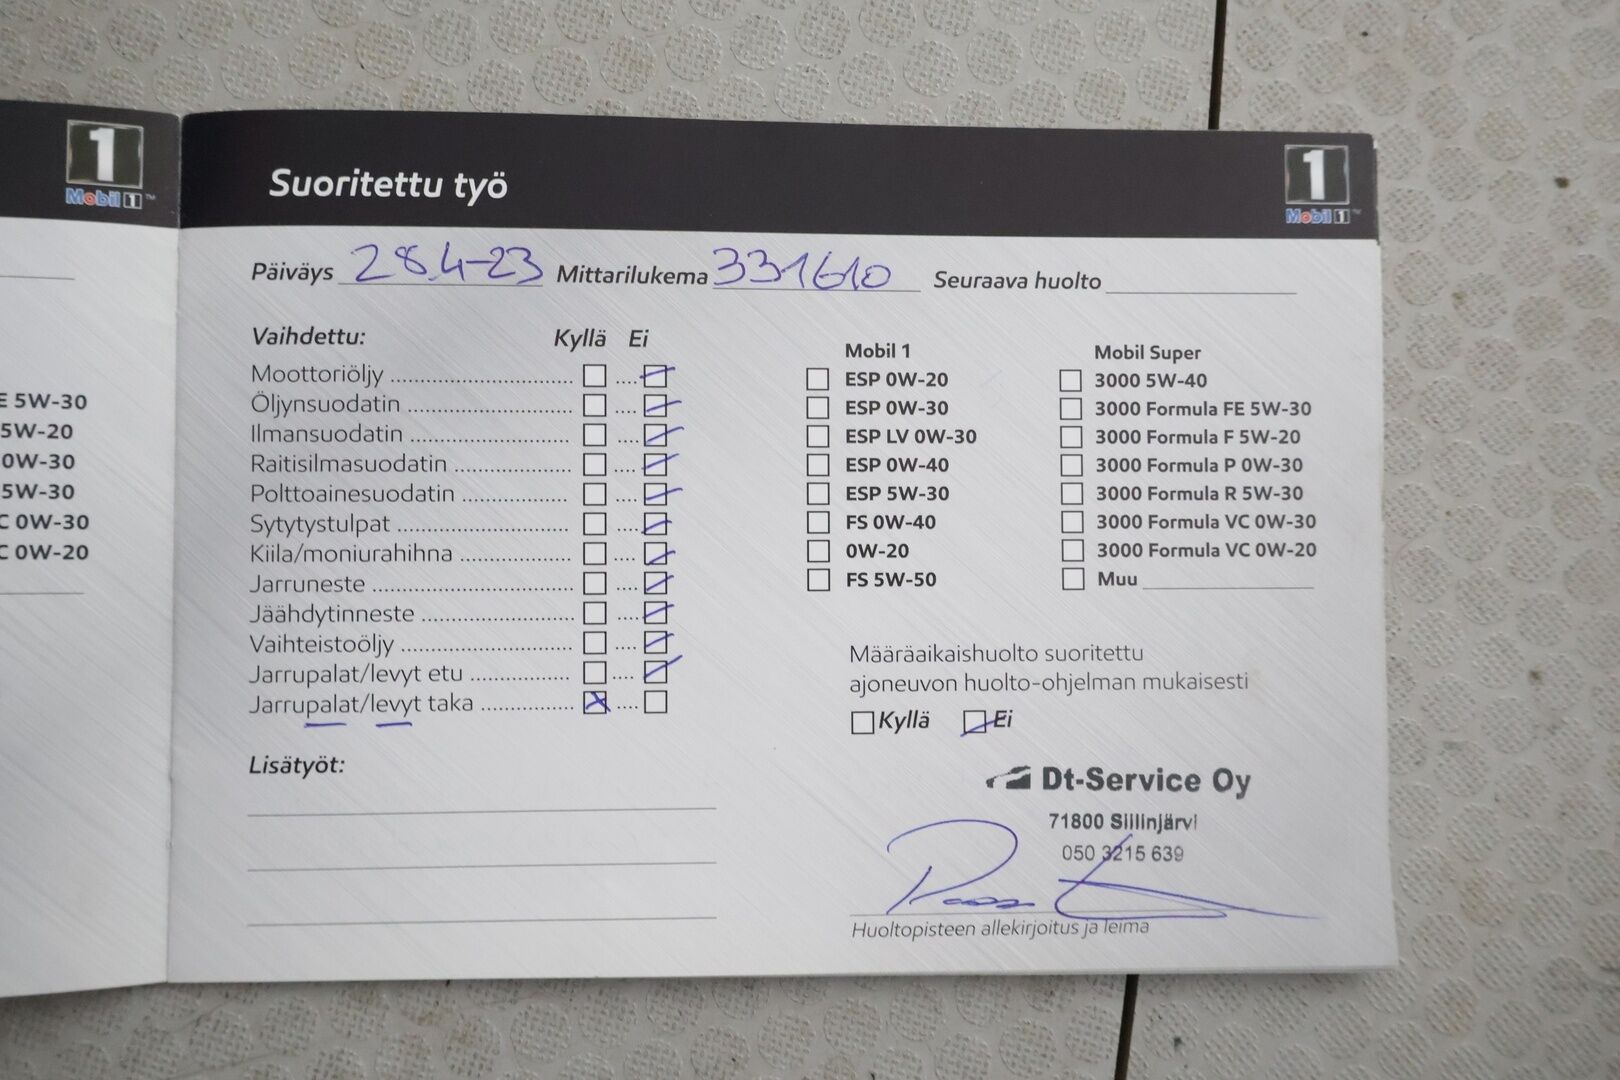 1
Mobil 1™
E 5W-30
5W-20
0W-30
5W-30
C 0W-30
C 0W-20
Suoritettu työ
1
Mobil 1™
Päiväys 28.4-23 Mittarilukema 331610 Seuraava huolto
Vaihdettu: Kyllä Ei
Moottoriöljy
Öljynsuodatin
Ilmansuodatin
Raitisilmasuodatin
Polttoainesuodatin
Sytytystulpat
Kiila/moniurahihna
Jarruneste
Jäähdytinneste
Vaihteistoöljy
Jarrupalat/levyt etu
Jarrupalat/levyt taka
Lisätyöt:
Mobil 1
ESP 0W-20
ESP 0W-30
ESP LV 0W-30
ESP 0W-40
ESP 5W-30
FS 0W-40
0W-20
FS 5W-50
Mobil Super
3000 5W-40
3000 Formula FE 5W-30
3000 Formula F 5W-20
3000 Formula P 0W-30
3000 Formula R 5W-30
3000 Formula VC 0W-30
3000 Formula VC 0W-20
Muu
Määräaikaishuolto suoritettu
ajoneuvon huolto-ohjelman mukaisesti
Kyllä Ei
Dt-Service Oy
71800 Siilinjärvi
050 3215 639
Huoltopisteen allekirjoitus ja leima